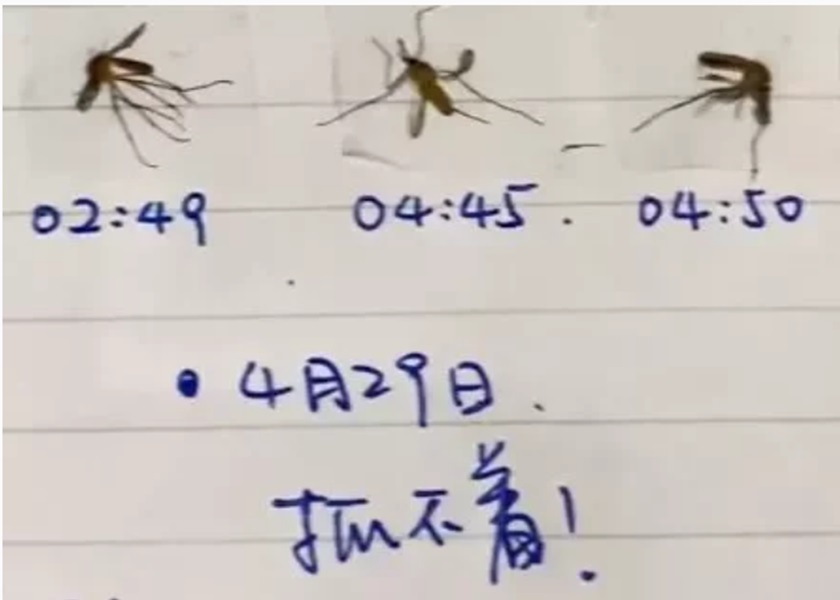 02:49 04:45. 04:50
• 4月29日.
抓不着!